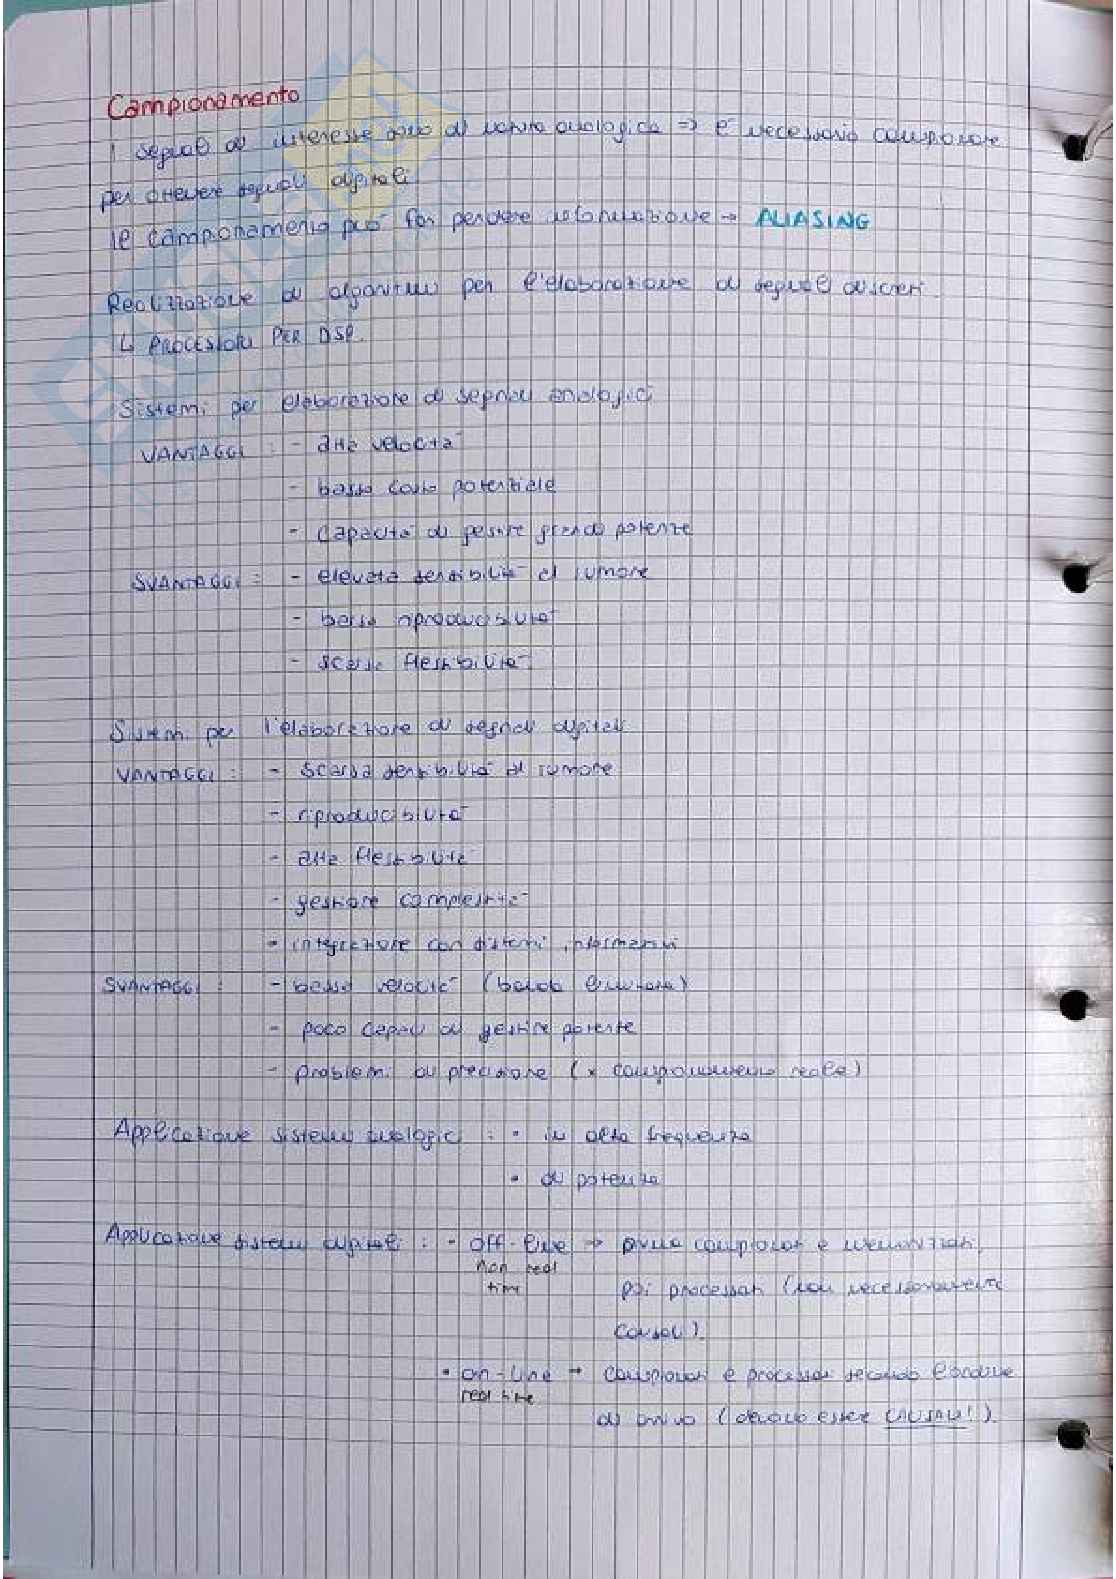 Campionamento
I segnali di interesse sono di natura analogica => è necessario campionare
per ottenere segnali digitali
Il campionamento può far perdere informazione → ALIASING
Realizzazione di algoritmi per l'elaborazione di segnali discreti
↳ PROCESSORI PER DSP.
Sistemi per elaborazione di segnali analogici
VANTAGGI : - alta velocità
- basso costo potenziale
- capacità di gestire grandi potenze
SVANTAGGI : - elevata sensibilità al rumore
- bassa riproducibilità
- scarsa flessibilità
Sistemi per l'elaborazione di segnali digitali
VANTAGGI : - scarsa sensibilità al rumore
- riproducibilità
- alta flessibilità
- gestione complessità
- integrazione con sistemi informatici
SVANTAGGI : - bassa velocità (banda limitata)
- poco capaci di gestire potenze
- problemi di precisione (x campionamento reale)
Applicazione sistemi analogici : • in alta frequenza
• di potenza
Applicazione sistemi digitali : - Off-line → prima campionati e memorizzati,
non real
time
poi processati (non necessariamente
causali).
• on-line → campionati e processati secondo l'ordine
real time
di arrivo (devono essere CAUSALI!).